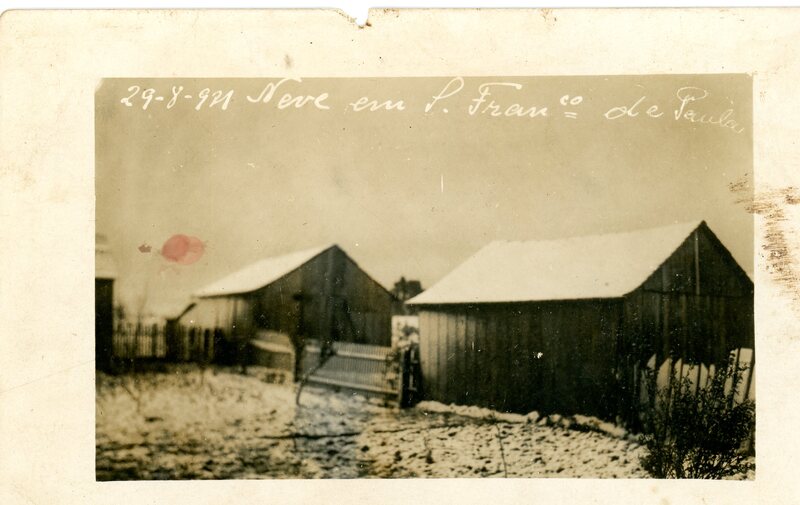 29-8-921 Neve em S. Franco de Paula